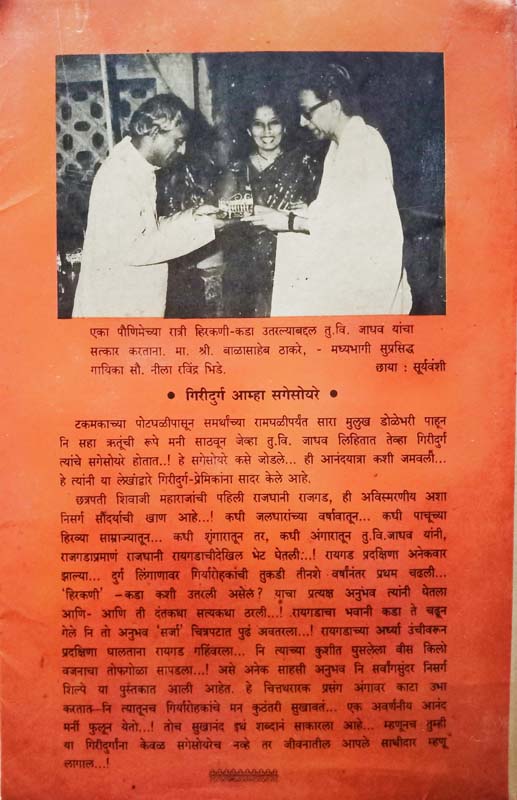 एका पौणिमेच्या रात्री हिरकणी-कडा उतरल्याबद्दल तु.वि. जाधव यांचा
सत्कार करताना. मा. श्री. बाळासाहेब ठाकरे, - मध्यभागी सुप्रसिद्ध
गायिका सौ. नीला रविंद्र भिडे. छाया : सूर्यवंशी
• गिरीदुर्ग आम्हा सगेसोयरे •
टकमकाच्या पोटपळीपासून समर्थांच्या रामघळीपर्यंत सारा मुलुख डोळेभरी पाहून
नि सहा ऋतूंची रूपे मनी साठवून जेव्हा तु.वि. जाधव लिहितात तेव्हा गिरीदुर्ग
त्यांचे सगेसोयरे होतात..! हे सगेसोयरे कसे जोडले... ही आनंदयात्रा कशी जमवली...
हे त्यांनी या लेखांद्वारे गिरीदुर्ग-प्रेमिकांना सादर केले आहे.
छत्रपती शिवाजी महाराजांची पहिली राजधानी राजगड, ही अविस्मरणीय अशा
निसर्ग सौंदर्याची खाण आहे...! कधी जलधारांच्या वर्षावातून... कधी पाचूच्या
हिरव्या साम्राज्यातून... कधी शृंगारातून तर, कधी अंगारातून तु.वि.जाधव यांनी,
राजगडाप्रमाणं राजधानी रायगडाचीदेखिल भेट घेतली..! रायगड प्रदक्षिणा अनेकवार
झाल्या... दुर्ग लिंगाणावर गिर्यारोहकांची तुकडी तीनशे वर्षांनंतर प्रथम चढली...
'हिरकणी' –कडा कशी उतरली असेल? याचा प्रत्यक्ष अनुभव त्यांनी घेतला
आणि- आणि ती दंतकथा सत्यकथा ठरली...! रायगडाचा भवानी कडा ते चढून
गेले नि तो अनुभव 'सर्जा' चित्रपटात पुढं अवतरला...! रायगडाच्या अर्ध्या उंचीवरून
प्रदक्षिणा घालताना रायगड गहिंवरला... नि त्याच्या कुशीत घुसलेला वीस किलो
वजनाचा तोफगोळा सापडला...! असे अनेक साहसी अनुभव नि सर्वांगसुंदर निसर्ग
शिल्पे या पुस्तकात आली आहेत. हे चित्तथरारक प्रसंग अंगावर काटा उभा
करतात–नि त्यातूनच गिर्यारोहकांचे मन कुठंतरी सुखावतं... एक अवर्णनीय आनंद
मनीं फुलून येतो...! तोच सुखानंद इथं शब्दानं साकारला आहे... म्हणूनच तुम्ही
या गिरीदुर्गांना केवळ सगेसोयरेच नव्हे तर जीवनातील आपले साथीदार म्हणू
लागाल...!